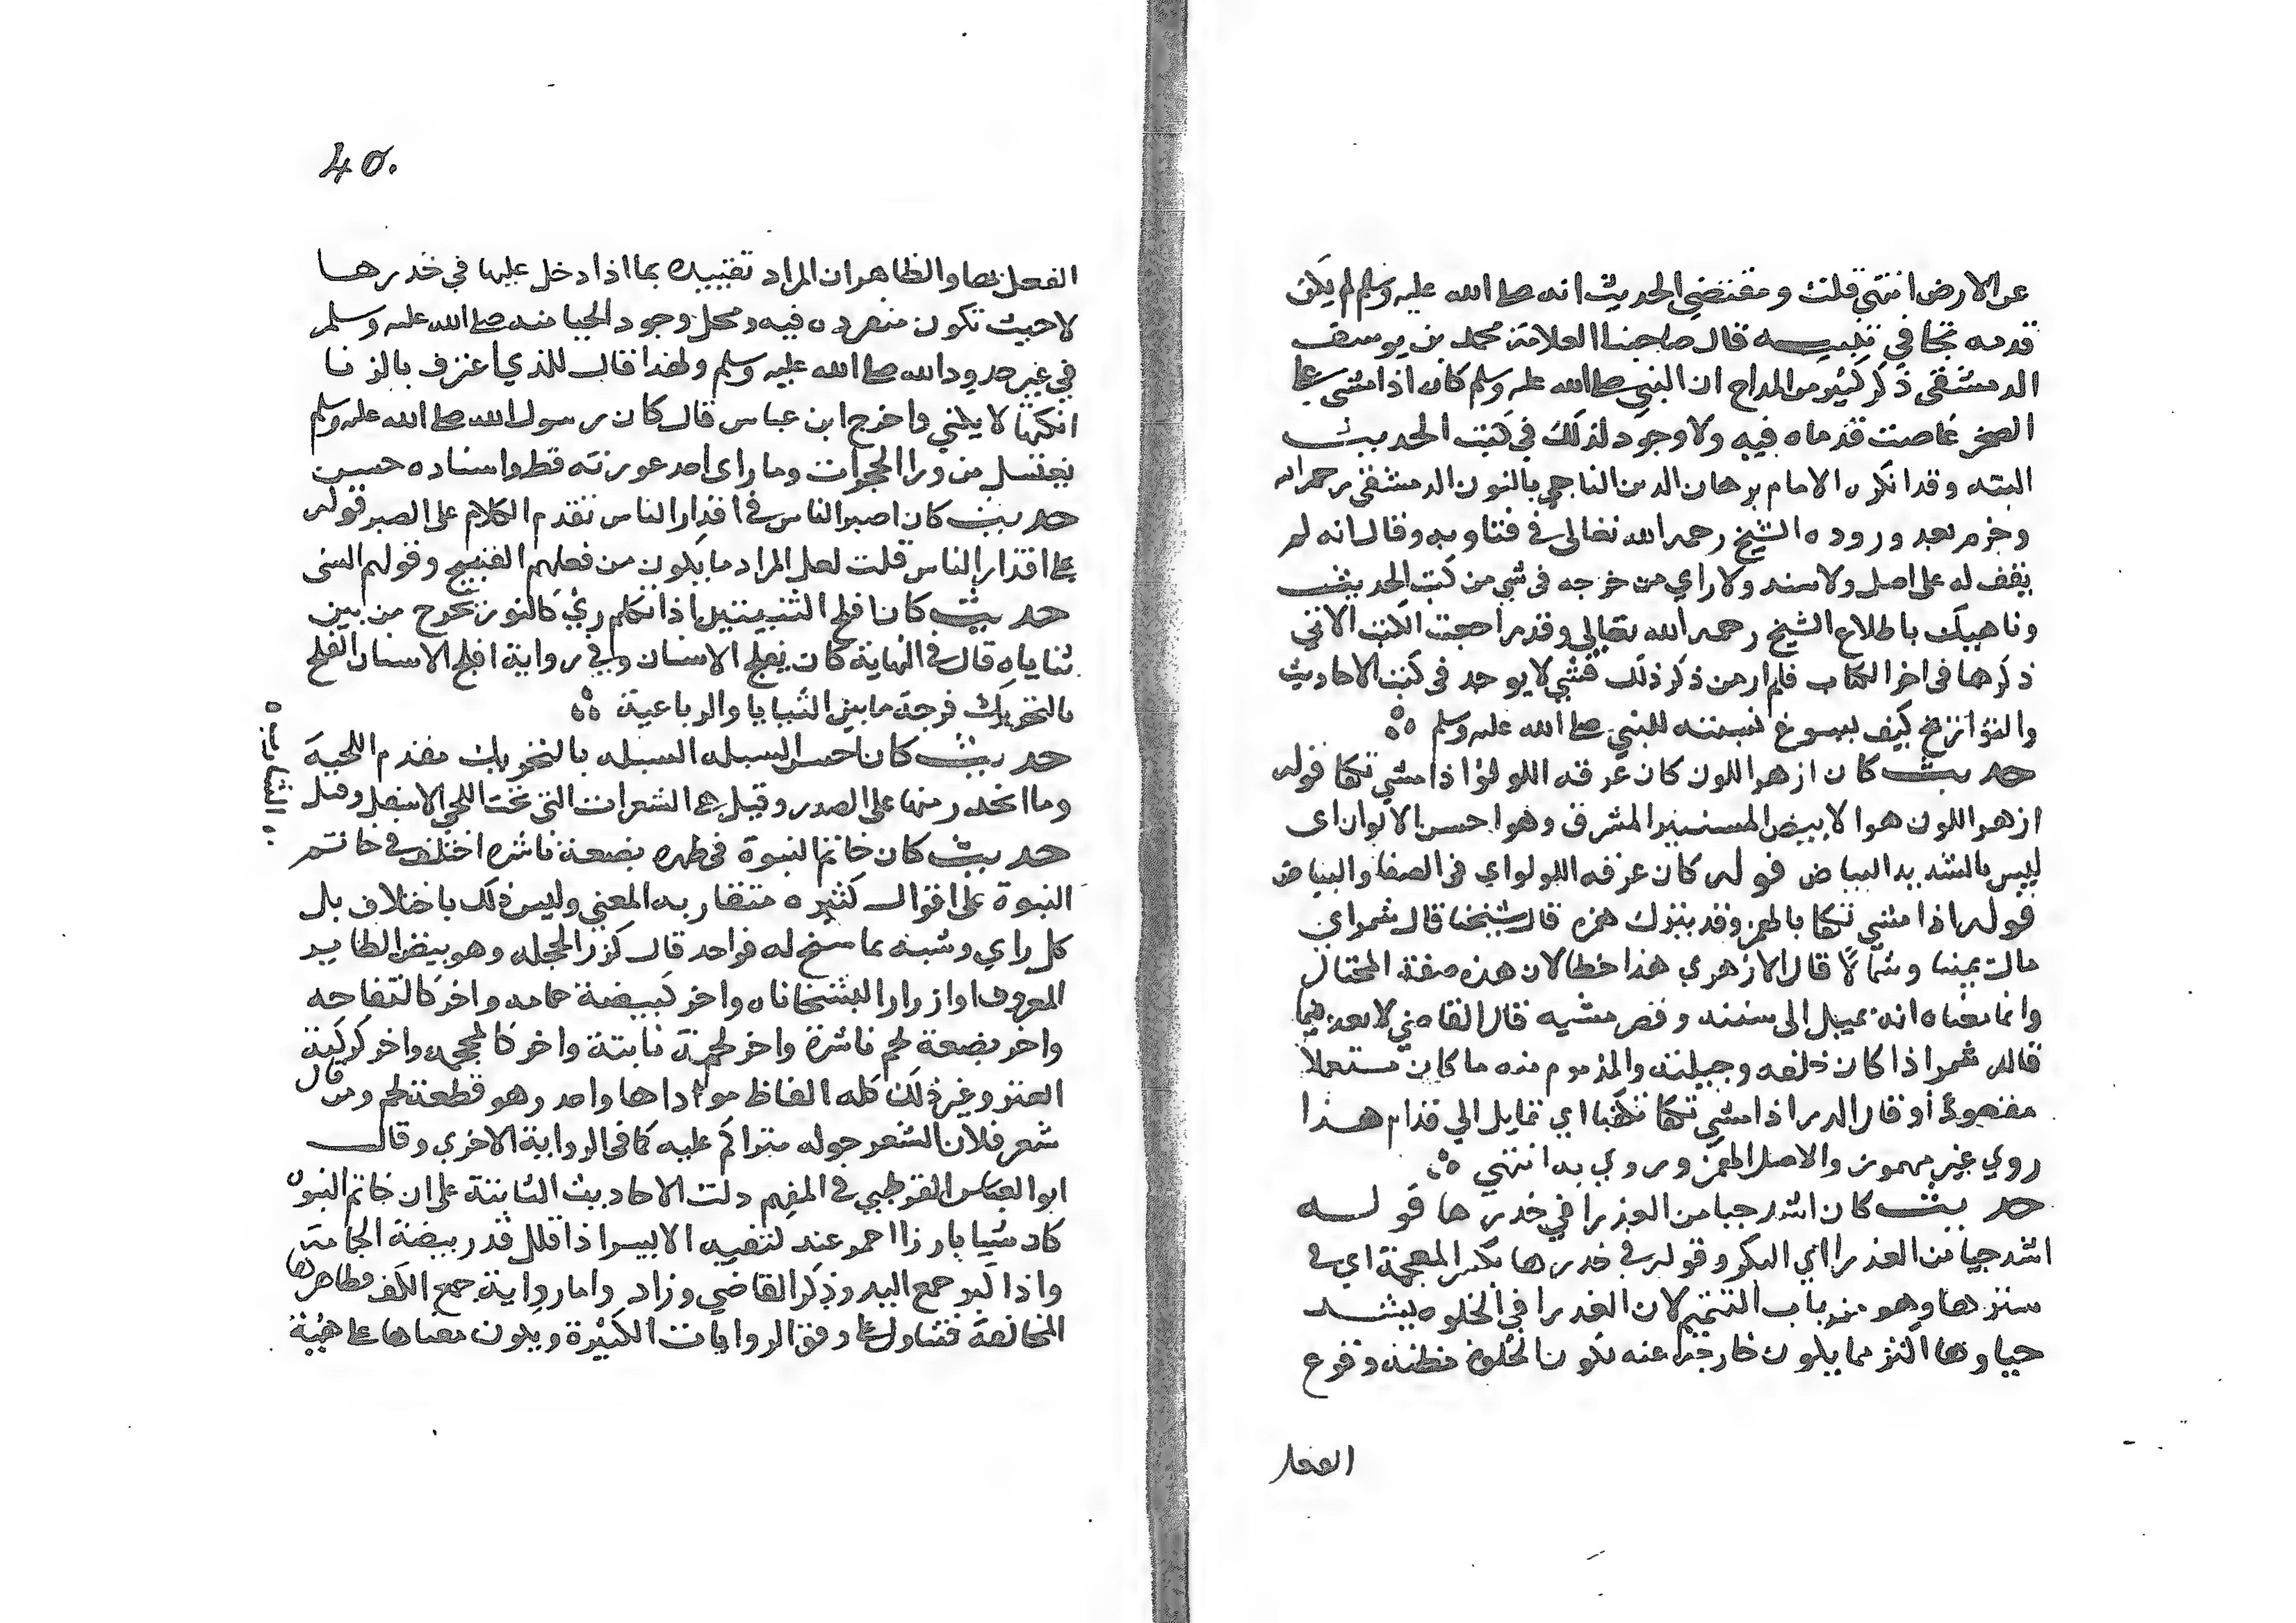 عن الارض انتهى قلت ومقتضى الحديث انه صلى الله عليه وسلم لم يكن
قدمه تجافي تنبيـــه قال صاحبنا العلامة محمد بن يوسف
الدمشقى ذكر كثير من المداح ان النبي صلى الله عليه وسلم كان اذا مشى على
الصخر غاصت قدماه فيه ولا وجود لذلك في كتب الحديث
البته وقد انكره الامام برهان الدين الناجي بالنون الدمشقى رحمه الله
وجزم بعد وروده الشيخ رحمه الله تعالى في فتاويه وقال انه لم
يقف له على اصل ولا سند ولا راي من خرجه في شي من كتب الحديث
وناهيك باطلاع الشيخ رحمه الله تعالى وقد راجعت الكتب الاتي
ذكرها في اخر الكتاب فلم ار من ذكر ذلك فشي لا يوجد في كتب الاحاديث
والتواريخ كيف يسوغ نسبته للنبي صلى الله عليه وسلم
حديث كان ازهر اللون كان عرقه اللولؤ اذا مشي تكفا قوله
ازهر اللون هو الابيض المستنير المشرق وهو احسن الالوان اى
ليس بالشديد البياض قوله كان عرقه اللولو اي في الصفا والبياض
قوله اذا مشي تكفا بالهمز وقد يترك همزه قال شيخنا قال شمر اي
مالت يمينا وشمالا قال الازهري هذا خطا لان هذه صفة المختال
وانما معناه انه يميل الى سننه وقصر مشيه قال القاضي لا بعد فيما
قاله شمر اذا كان خلقه وجبلته والمذموم منه ما كان مستعملا
مقصودا وقال الدمرا اذا مشي تكفا تكفيا اي تمايل الي قدام هذا
روي غير مهموز والاصل الهمز وروي به انتهي
حديث كان اشد حيا من العذرا في خدرها قولـــه
اشد حيا من العذرا اي البكر وقوله في خدرها بكسر المعجمة اي في
سترها وهو من باب التتميم لان العذرا في الخلوه يشتد
حياوها اكثر مما يكون خارجة عنه لكون الخلوة مظنة وقوع
الفعل
40.
الفعل بها والظاهر ان المراد تقييده بما اذا دخل عليها في خدرها
لا حيث تكون منفرده فيه ومحل وجود الحيا منه صلى الله عليه وسلم
في غير حدود الله صلى الله عليه وسلم ولهذا قال للذي اعترف بالزنا
انكتها لا يكني واخرج ابن عباس قال كان رسول الله صلى الله عليه وسلم
يغتسل من ورا الحجرات وما راى احد عورته قط واسناده حسن
حديث كان اصبر الناس في اقذار الناس تقدم الكلام على الصبر قوله
على اقذار الناس قلت لعل المراد ما يكون من فعلهم القبيح وقولهم السئ
حديث كان افلج الثنيتين اذا تكلم رئي كالنور يخرج من بين
ثناياه قال في النهاية كان يفلج الاسنان وفي رواية افلج الاسنان الفلج
بالتحريك فرجة ما بين الثنايا والرباعية
حديث كان احسن السبله السبله بالتحريك مقدم اللحية
وما انحدر منها على الصدر وقيل هي الشعرات التي تحت اللحي الاسفل وقيل
الشاربـــه
حديث كان خاتم النبوة في ظهره بضعة ناشزه اختلف في خاتم
النبوة على اقوال كثيره متقاربه المعني وليس ذلك باختلاف بل
كل راي وشبه بما سنخ له فواحد قال كزر الحجله وهو بيض الطاير
المعروف او ازرار البشخاناه واخر كبيضة حمامه واخر كالتفاحه
واخر بضعة لحم ناشزة واخر لحمة نابتة واخر كالمحجمه واخر كركبة
العنز وغير ذلك كله الفاظ مواداها واحد وهو قطعة لحم ومن قال
شعر فلان الشعر حوله متراكم عليه كما في الرواية الاخري وقال
ابو العباس القرطبي في المفهم دلت الاحاديث الثابتة على ان خاتم النبوه
كان شيا بارزا احمر عند كتفيه الايسر اذا قلل قدر بيضة الحمامة
واذا كبر جمع اليد وذكر القاضي وزاد واما رواية جمع الكف فظاهرها
المخالفة فتتاول على وفق الروايات الكثيرة ويكون معناها على هيئة